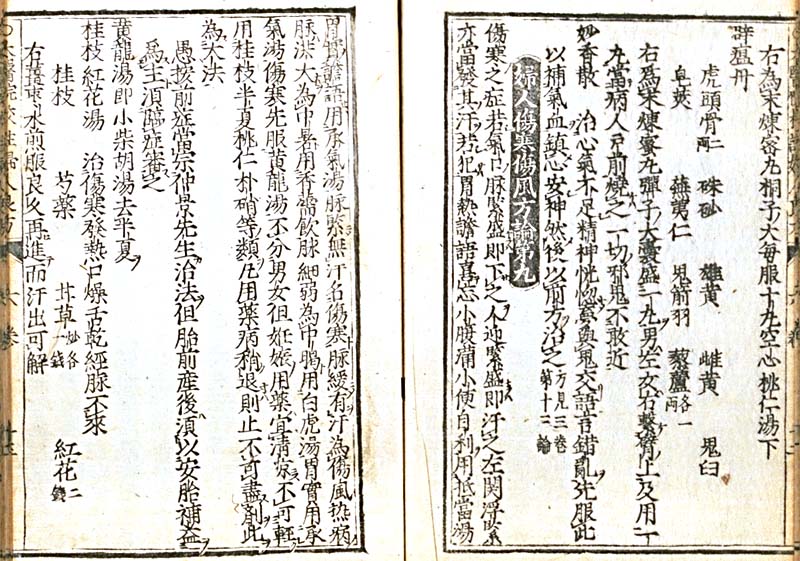 右為末煉蜜丸桐子大每服十九空心桃仁湯下
辟瘟丹
虎頭骨二兩 硃砂 雄黃 雌黃 鬼臼
皂莢 蕪荑仁 鬼箭羽 藜蘆各一兩
右為末煉蜜丸彈子大囊盛一丸男左女右繫臂上及用一
丸當病人戶前燒之一切邪鬼不敢近
妙香散 治心氣不足精神恍惚與鬼交語言錯亂先服此
以補氣血鎮心安神然後以前方治之方見三卷第十二論
婦人傷寒傷風方論第九
傷寒之症若氣口脉緊盛即下之人迎緊盛即汗之左関浮緊
亦當發其汗若犯胃熱譫語喜忘小腹痛小便自利用抵當湯
胃實譫語用承氣湯脉緊無汗名傷寒脉緩有汗為傷風热病
脉洪大為中暑用香薷飲脉細弱為中暍用白虎湯胃實用承
氣湯傷寒先服黄龍湯不分男女但妊娠用藥宜清凉不可輕
用桂枝半夏桃仁朴硝等類凡用藥病稍退則止不可盡劑此
為大法
愚按前症當宗仲景先生治法但胎前産後須以安胎補益
為主須臨症審之
黄龍湯即小柴胡湯去半夏
桂枝紅花湯 治傷寒發熱口燥舌乾經脉不來
桂枝 芍藥 甘草炒各一錢 紅花二錢
右薑棗水煎服良久再進而汗出可解